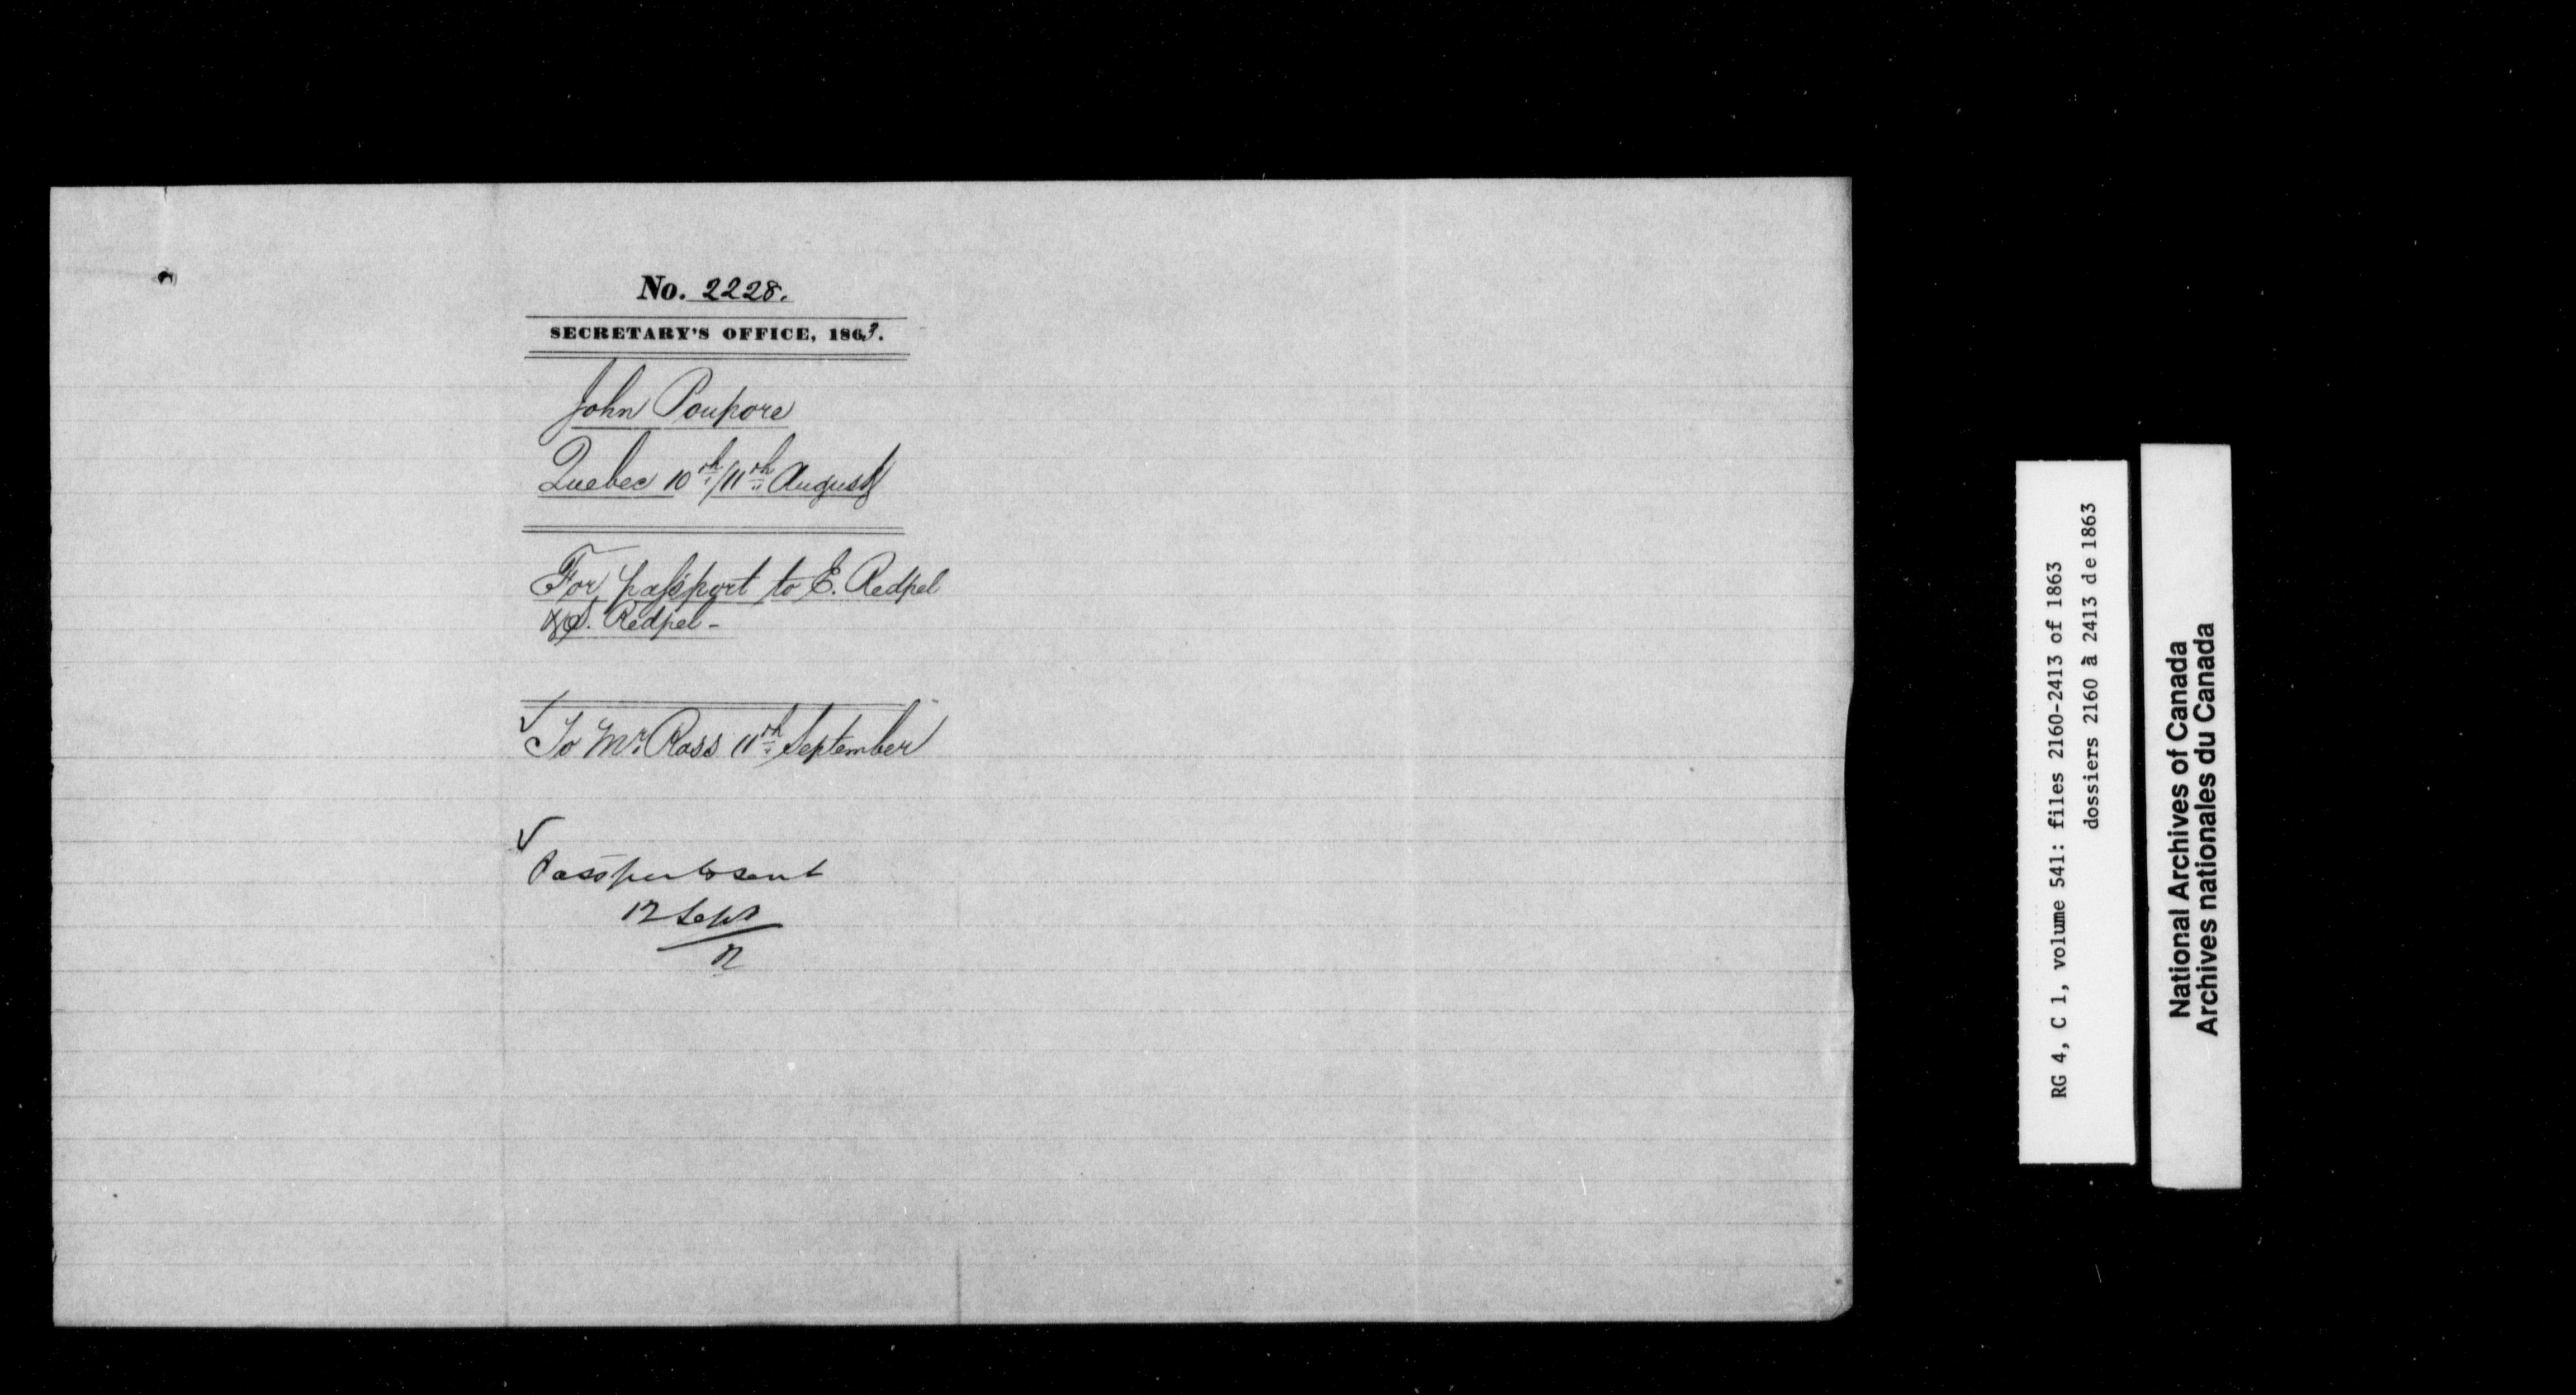 No. 2228.
SECRETARY'S OFFICE, 1863.
John Poupore
Quebec 10th/11th August
For passport to E. Redpel
& S. Redpel -
To Mr. Ross 11th September
Passports sent
12 Sept
RG 4, C 1, volume 541: files 2160-2413 of 1863
dossiers 2160 à 2413 de 1863
National Archives of Canada
Archives nationales du Canada